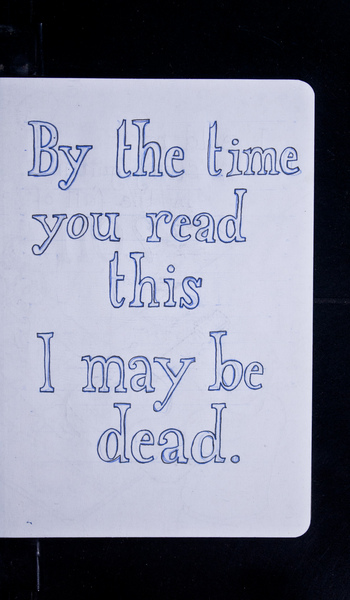 By the time
you read
this
I may be
dead.